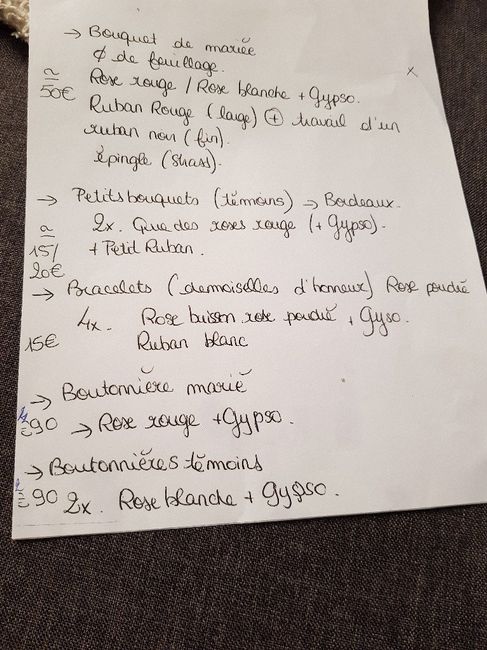 → Bouquet de mariée
∅ de feuillage.
≃ 50€ Rose rouge / Rose blanche + Gypso.
Ruban Rouge (large) ⊕ travail d'un
ruban noir (fin).
épingle (Strass).
→ Petits bouquets (témoins) → Bordeaux.
≃ 15/20€ 2x. Que des roses rouge (+ Gypso).
+ Petit Ruban.
→ Bracelets (demoiselles d'honneur) Rose poudré
4x. Rose buisson rose poudré + Gypso.
15€ Ruban blanc
→ Boutonnière marié
90 → Rose rouge + Gypso.
→ Boutonnières témoins
90 2x. Rose blanche + Gypso.